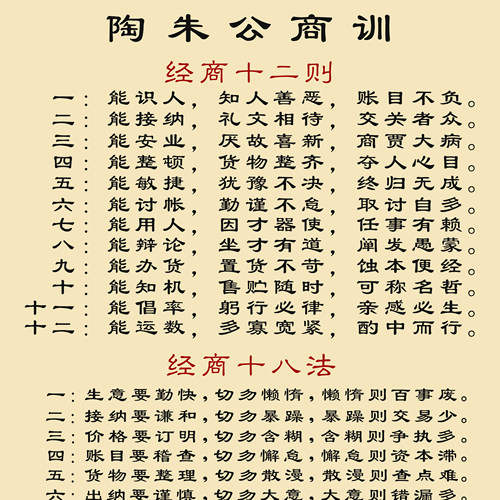 陶朱公商训
经商十二则
一：能识人，知人善恶，账目不负。
二：能接纳，礼文相待，交关者众。
三：能安业，厌故喜新，商贾大病。
四：能整顿，货物整齐，夺人心目。
五：能敏捷，犹豫不决，终归无成。
六：能讨帐，勤谨不怠，取讨自多。
七：能用人，因才器使，任事有赖。
八：能辩论，坐才有道，阐发愚蒙。
九：能办货，置货不苛，蚀本便经。
十：能知机，售贮随时，可称名哲。
十一：能倡率，躬行必律，亲感必生。
十二：能运数，多寡宽紧，酌中而行。
经商十八法
一：生意要勤快，切勿懒惰，懒惰则百事废。
二：接纳要谦和，切勿暴躁，暴躁则交易少。
三：价格要订明，切勿含糊，含糊则争执多。
四：账目要稽查，切勿懈怠，懈怠则资本滞。
五：货物要整理，切勿散漫，散漫则查点难。
六：出纳要谨慎，切勿大意，大意则错漏多。